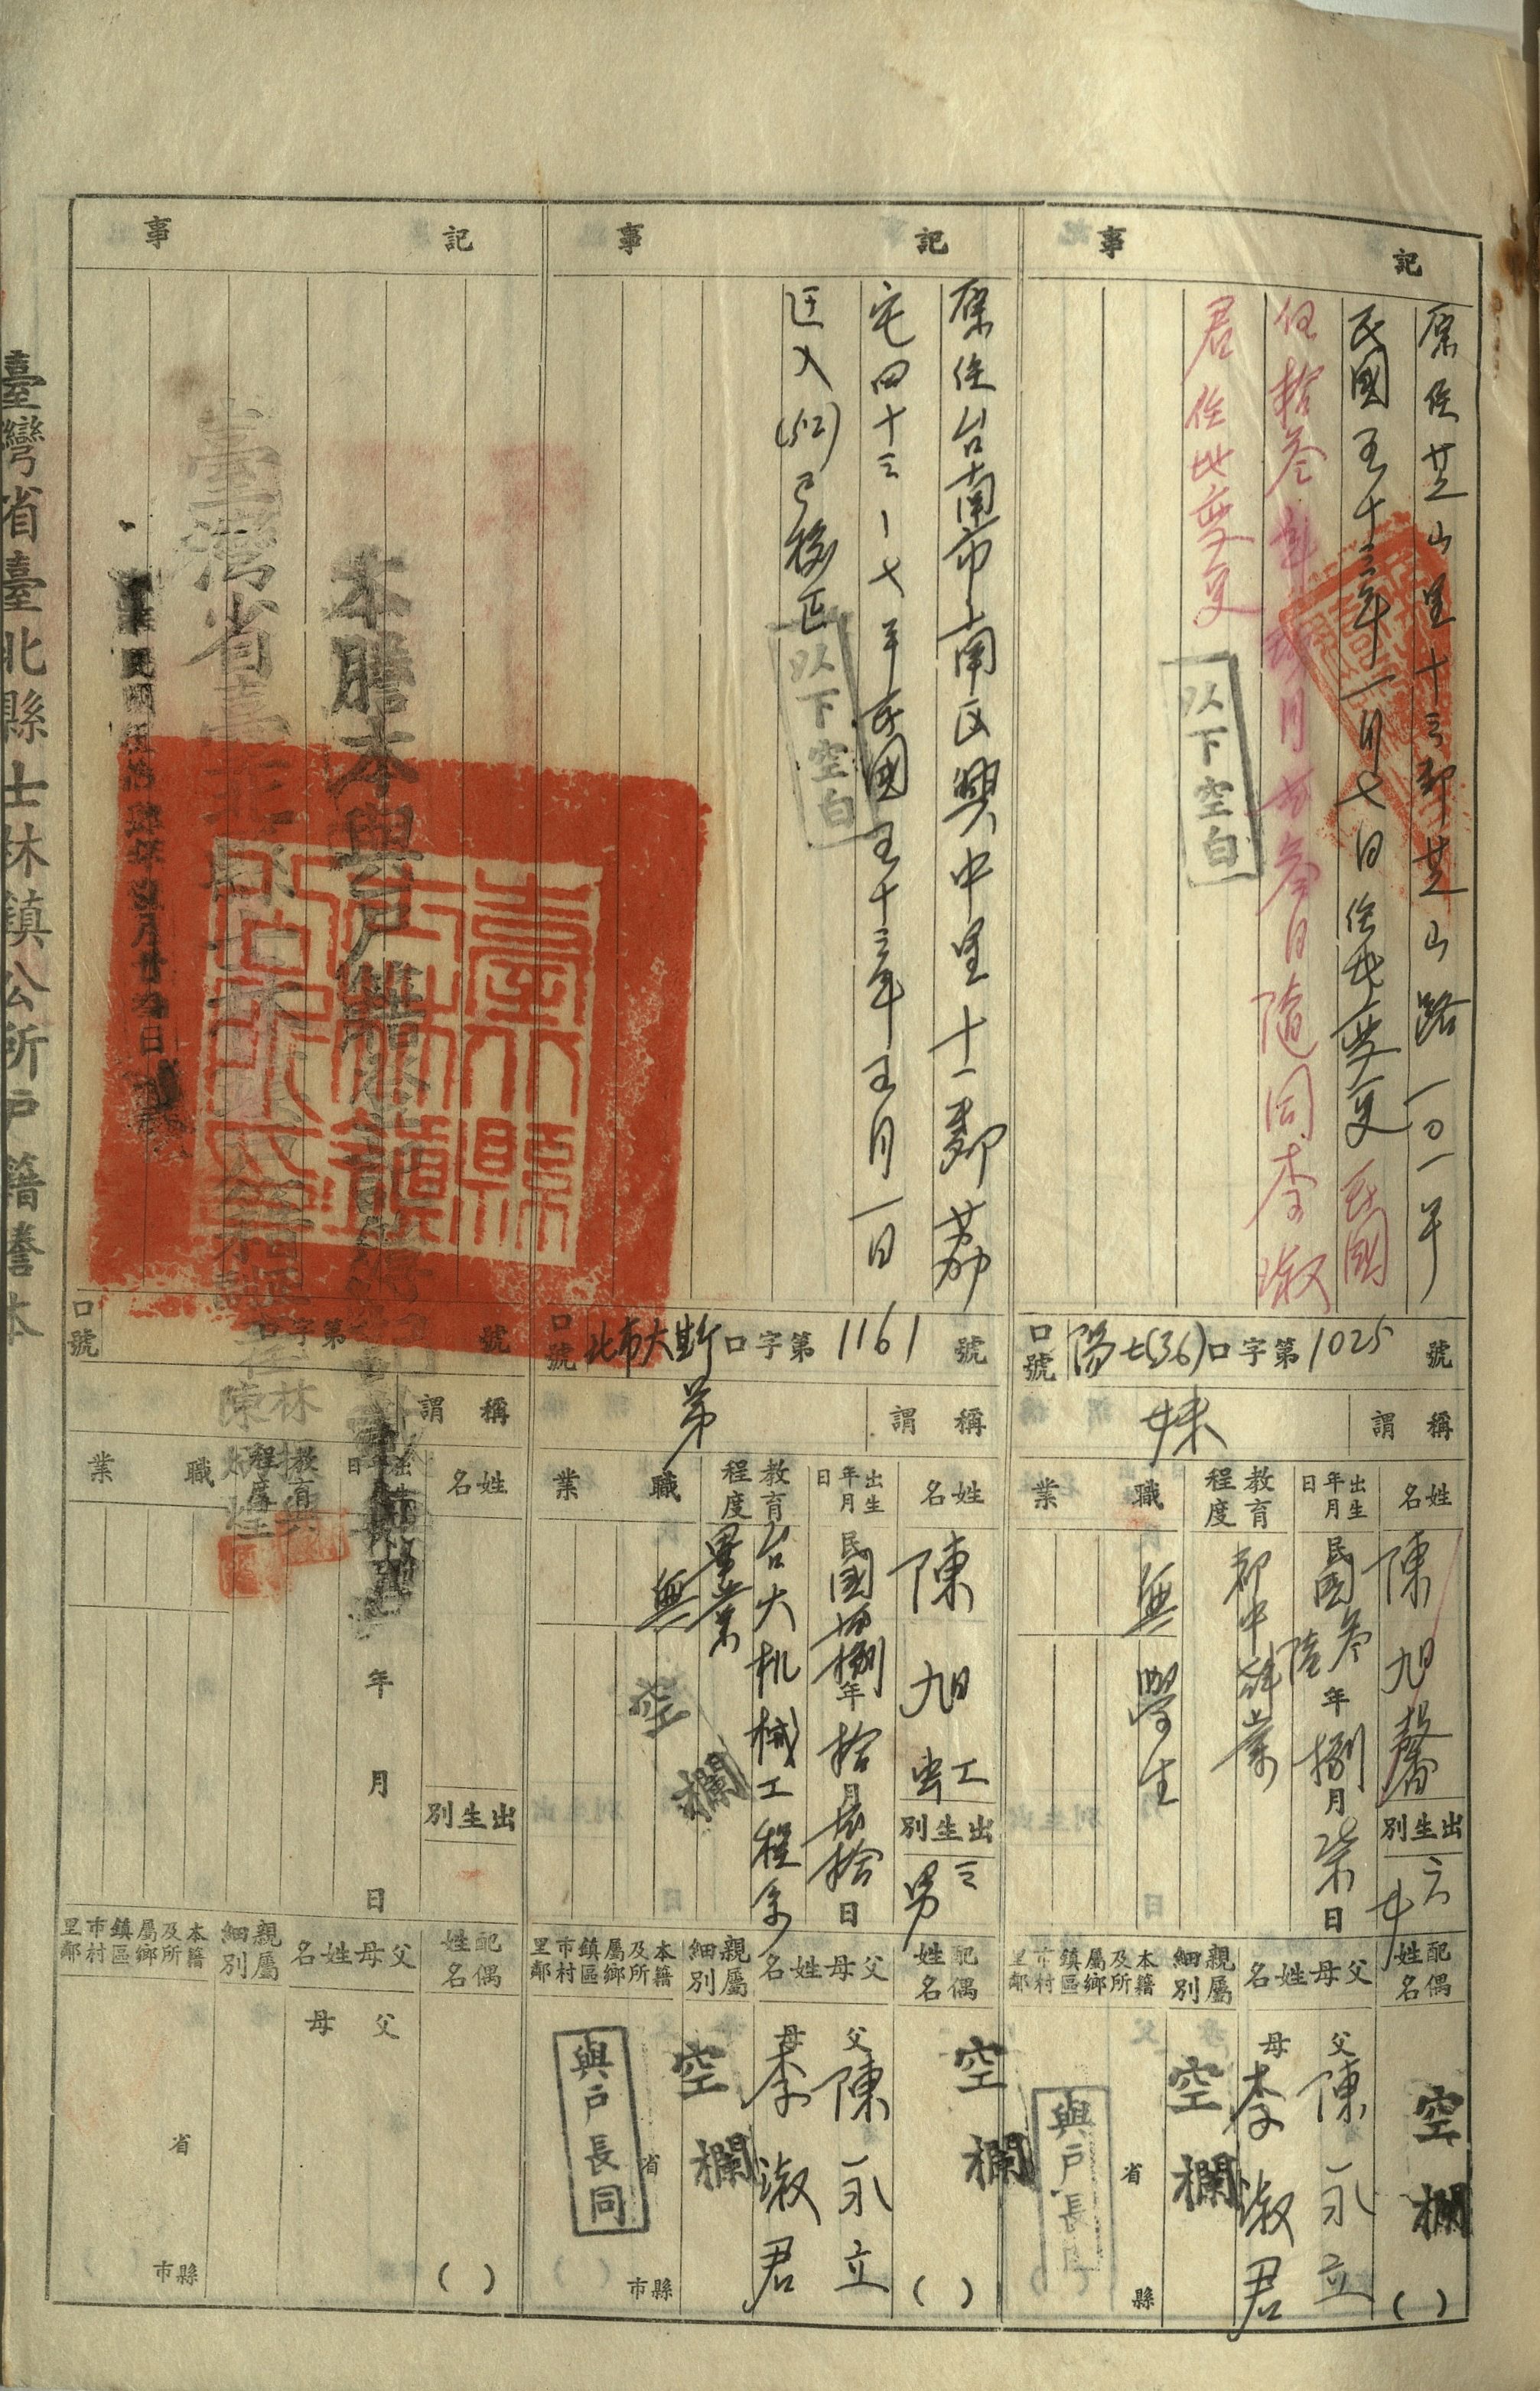 記事
原住芝山里十三鄰芝山路一〇一号
民國五十三年一月七日住址變更 民國
伍拾叁年 月廿叁日隨同李淑
君住址變更
以下空白
口號
陽七(36)口字第1025號
稱謂
妹
姓名
陳旭馨
出生別
六女
出生年月日
民國叁陸年捌月柒日
教育程度
初中畢業
職業
無
學生
配偶姓名
空欄
( )
父母姓名
父 陳永立
母 李淑君
親屬細別
空欄
本籍及所屬鄉鎮區市村里鄰
省
縣
與戶長同
記事
原住台南市南区興中里十一鄰荔
宅四十三-七号民國五十三年五月一日
迁入(52)已校正
以下空白
口號
北市大斯口字第1161號
稱謂
弟
姓名
陳旭虹
出生別
三男
出生年月日
民國 捌年拾月 拾日
教育程度
台大机械工程系
畢業
職業
無
空欄
配偶姓名
空欄
( )
父母姓名
父 陳永立
母 李淑君
親屬細別
空欄
本籍及所屬鄉鎮區市村里鄰
省
縣市
與戶長同
記事
本謄本與戶籍登記
臺灣省臺北縣士林鎮
中華民國伍拾 年 月廿 日
口號
口字第 號
稱謂
姓名
出生別
出生年月日
年 月 日
教育程度
職業
配偶姓名
( )
父母姓名
父
母
親屬細別
本籍及所屬鄉鎮區市村里鄰
省
縣市
臺灣省臺北縣士林鎮公所戶籍謄本